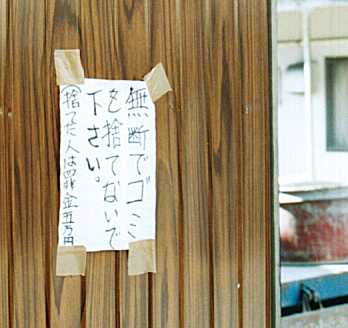 無断でゴミ
を捨てないで
下さい。
捨てた人は罰金五万円